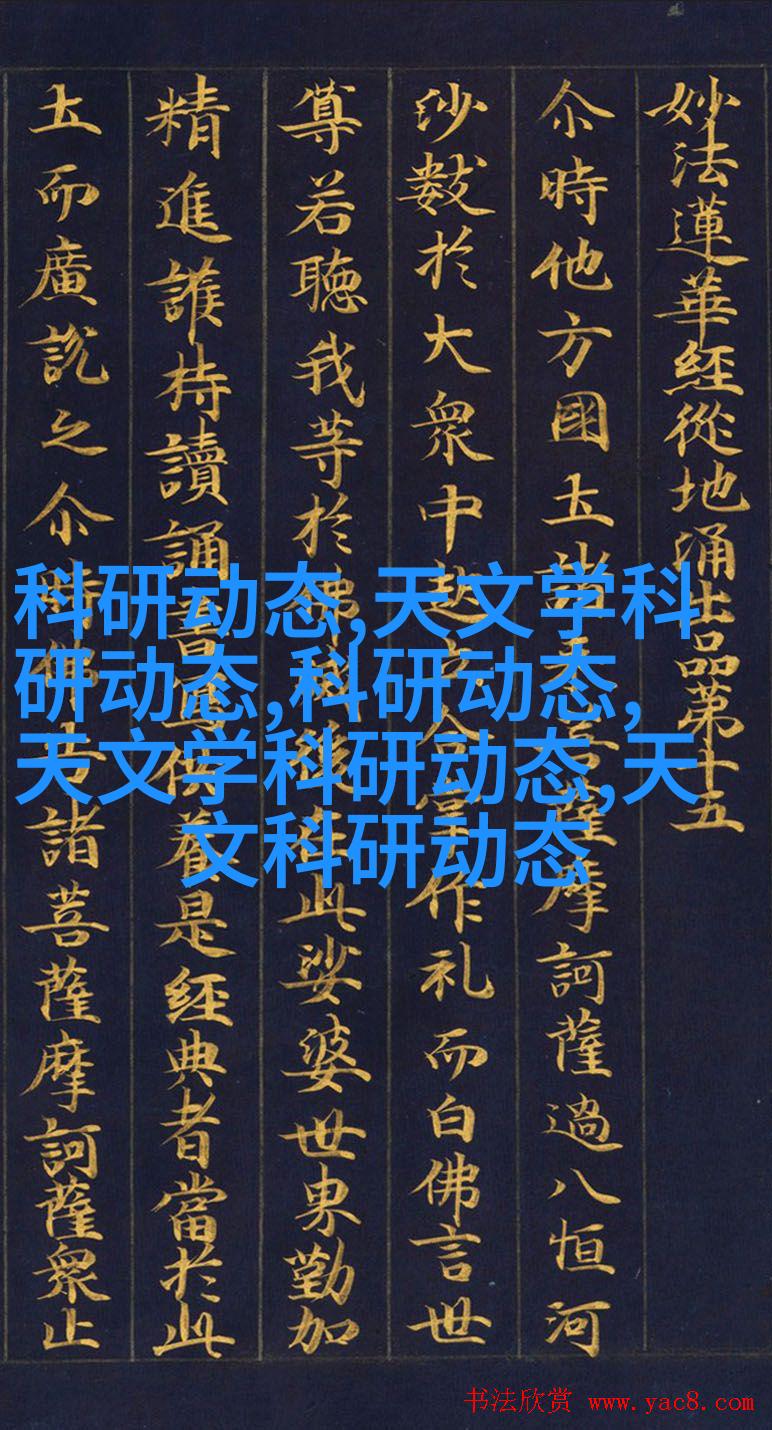 妙法蓮華經從地涌出品第十五
尒時他方國土諸來菩薩摩訶薩過八恒河
沙數於大衆中起立合掌作礼而白佛言世
尊若聽我等於佛滅後在此娑婆世界勤加
精進護持讀誦書寫供養是經典者當於此
土而廣說之尒時佛告諸菩薩摩訶薩衆止
科研动态,天文学科
研动态,科研动态,
天文学科研动态,天
文科研动态
书法欣赏 www.yac8.com